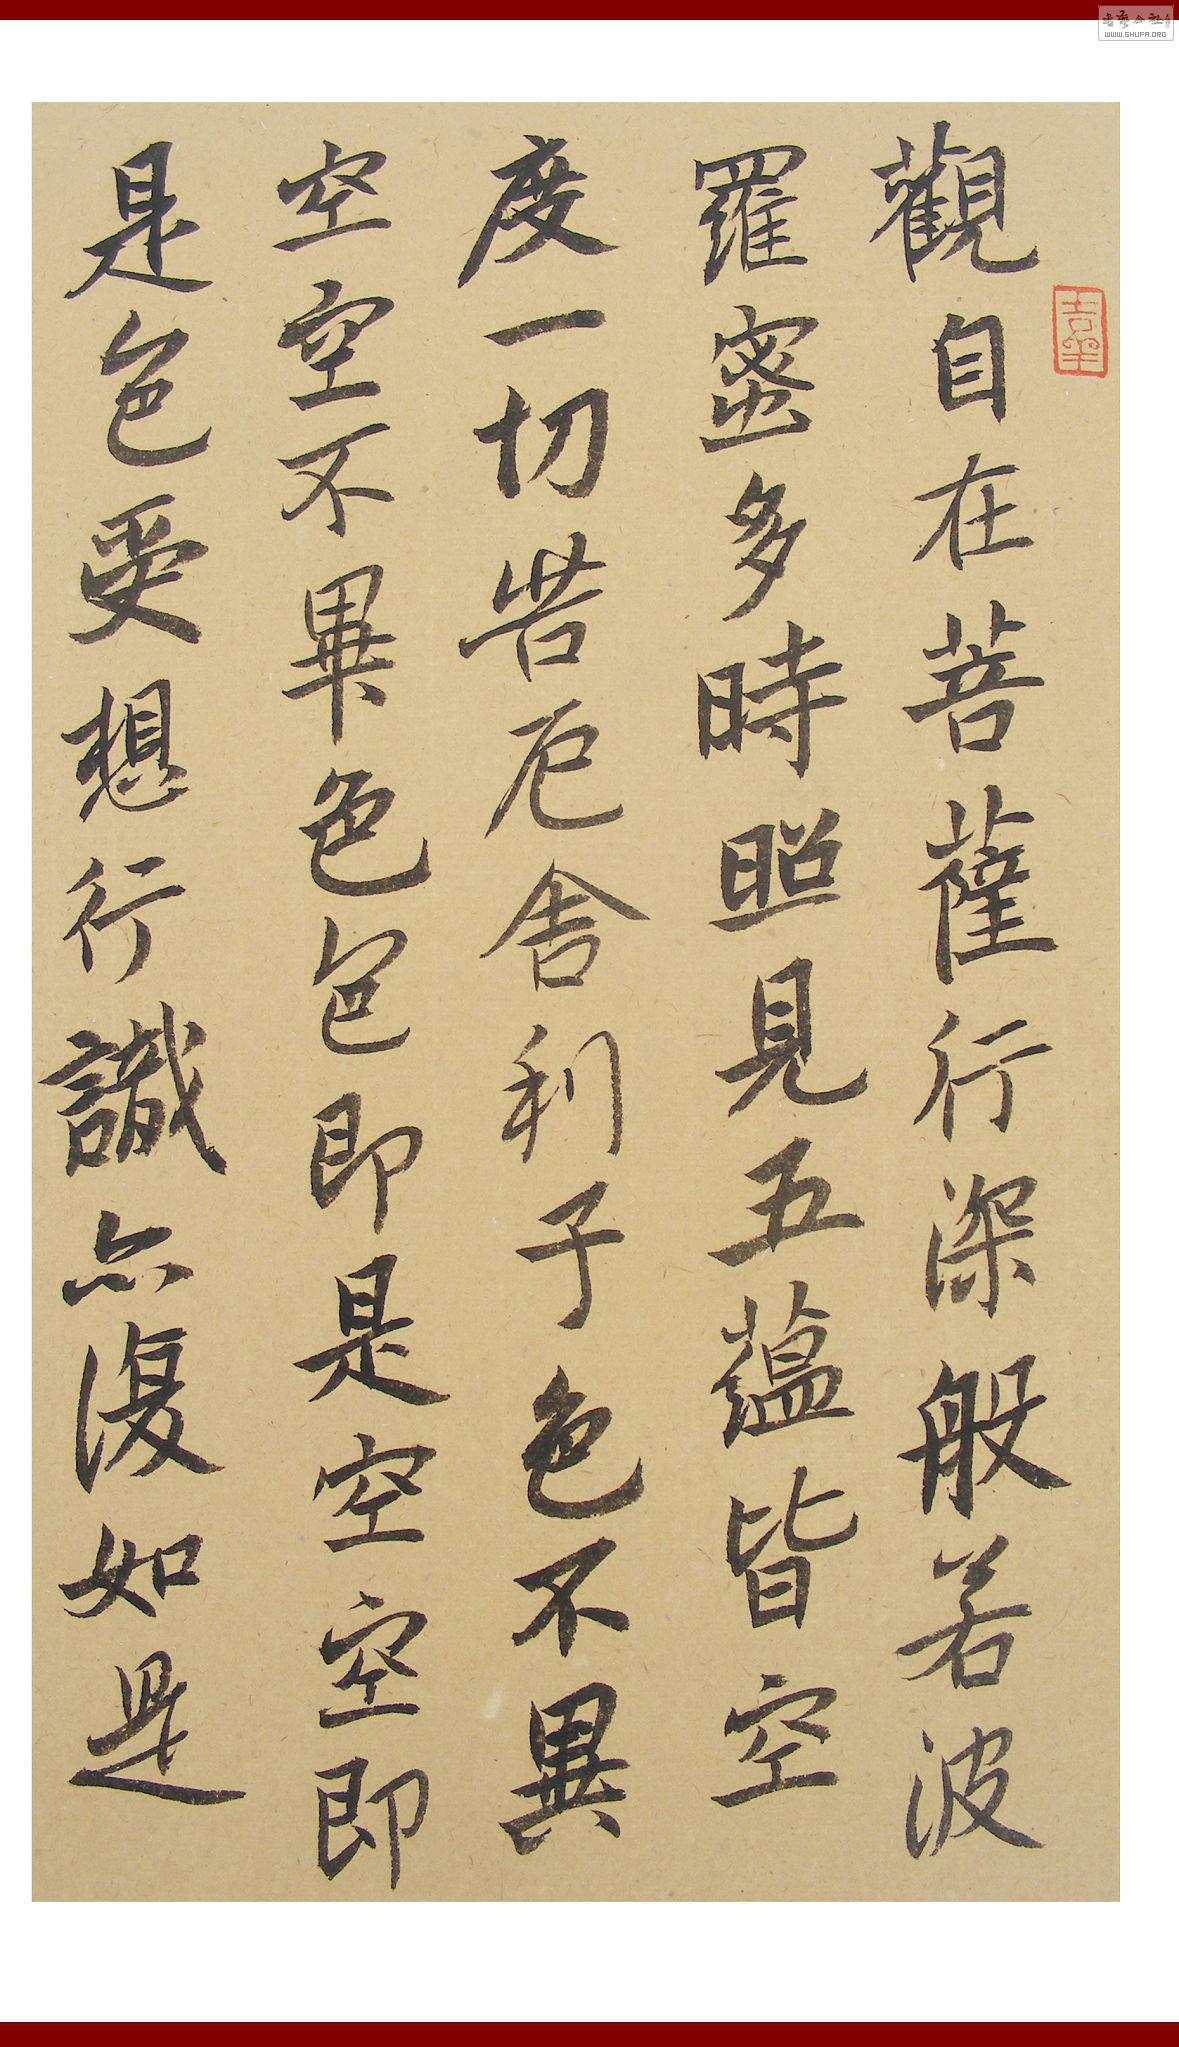 觀自在菩薩行深般若波
羅蜜多時照見五蘊皆空
度一切苦厄舍利子色不異
空空不異色色即是空空即
是色受想行識亦復如是
WWW.SHUFA.ORG